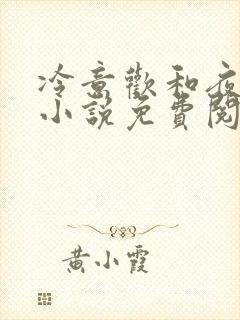 冷意歡和夜
小說免費閱
黃小霞